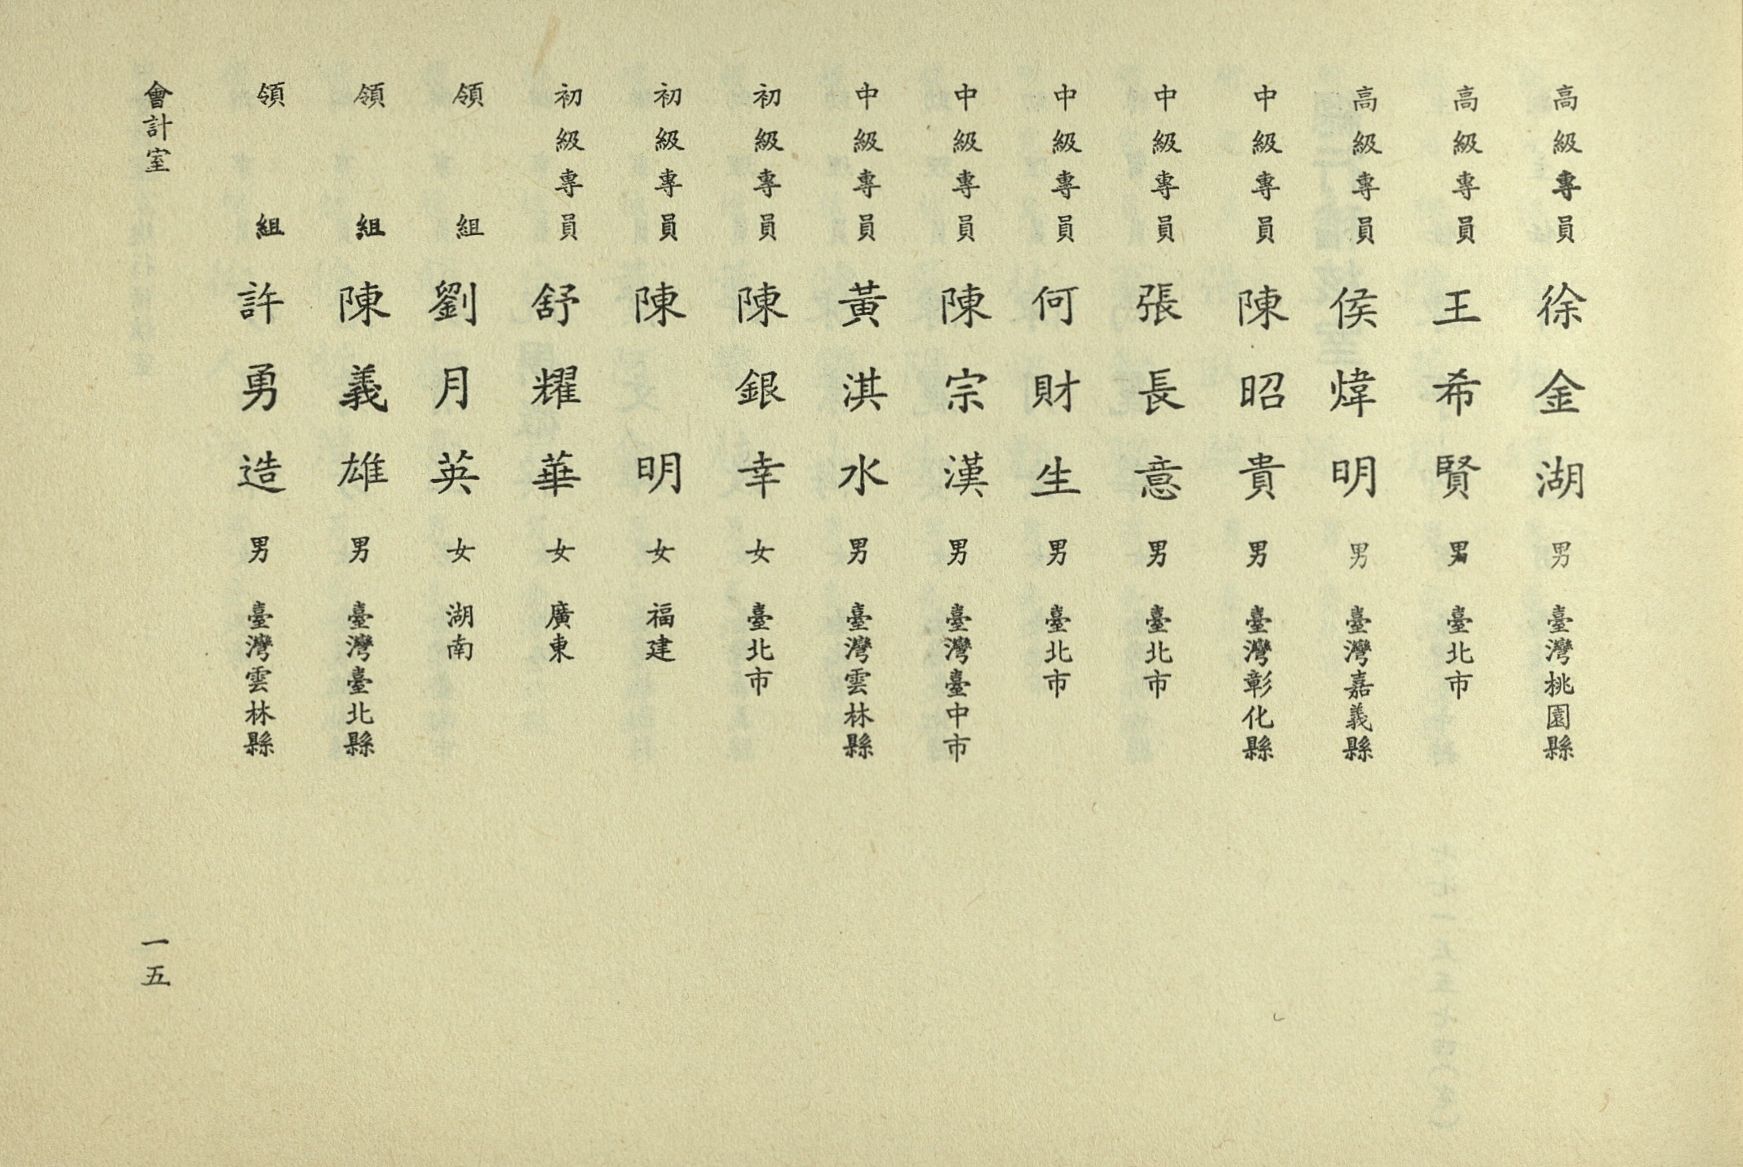 高級專員 徐金湖 男 臺灣桃園縣
高級專員 王希賢 男 臺北市
高級專員 侯煒明 男 臺灣嘉義縣
中級專員 陳昭貴 男 臺灣彰化縣
中級專員 張長意 男 臺北市
中級專員 何財生 男 臺北市
中級專員 陳宗漢 男 臺灣臺中市
中級專員 黃淇水 男 臺灣雲林縣
初級專員 陳銀幸 女 臺北市
初級專員 陳明 女 福建
初級專員 舒耀華 女 廣東
領組 劉月英 女 湖南
領組 陳義雄 男 臺灣臺北縣
領組 許勇造 男 臺灣雲林縣
會計室 一五